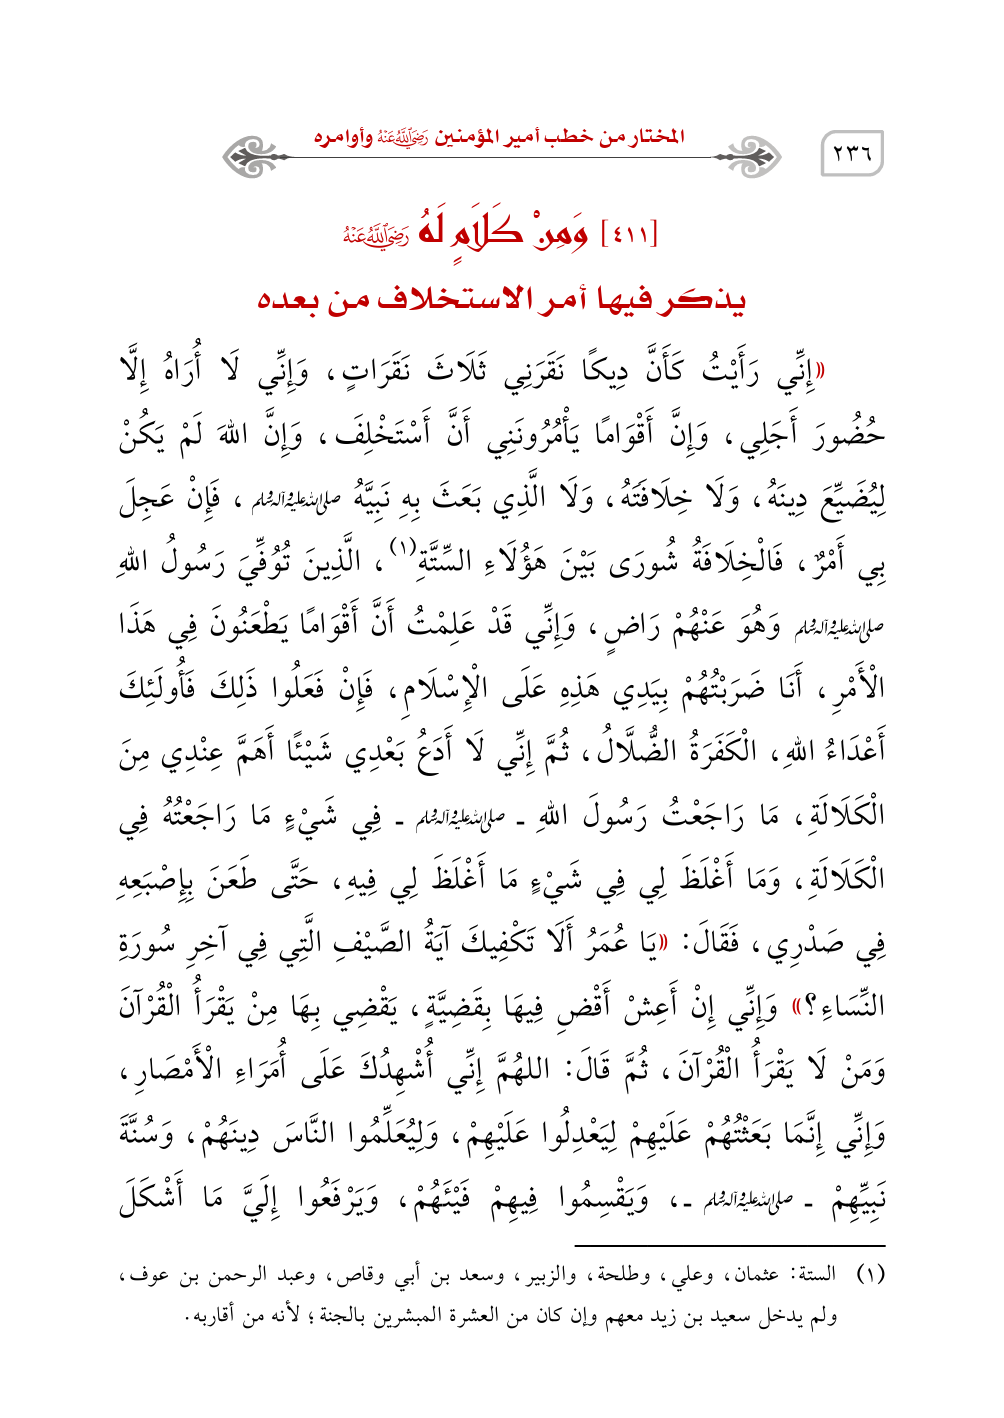 ٢٣٦
المختار من خطب أمير المؤمنين رَضِيَ اللَّهُ عَنْهُ وأوامره
[٤١١] وَمِنْ كَلَامٍ لَهُ رَضِيَ اللَّهُ عَنْهُ
يذكر فيها أمر الاستخلاف من بعده
«إِنِّي رَأَيْتُ كَأَنَّ دِيكًا نَقَرَنِي ثَلَاثَ نَقَرَاتٍ، وَإِنِّي لَا أُرَاهُ إِلَّا
حُضُورَ أَجَلِي، وَإِنَّ أَقْوَامًا يَأْمُرُونَنِي أَنَّ أَسْتَخْلِفَ، وَإِنَّ اللهَ لَمْ يَكُنْ
لِيُضَيِّعَ دِينَهُ، وَلَا خِلَافَتَهُ، وَلَا الَّذِي بَعَثَ بِهِ نَبِيَّهُ صلى الله عليه وآله وسلم، فَإِنْ عَجِلَ
بِي أَمْرٌ، فَالْخِلَافَةُ شُورَى بَيْنَ هَؤُلَاءِ السِّتَّةِ(١)، الَّذِينَ تُوُفِّيَ رَسُولُ اللهِ
صلى الله عليه وآله وسلم وَهُوَ عَنْهُمْ رَاضٍ، وَإِنِّي قَدْ عَلِمْتُ أَنَّ أَقْوَامًا يَطْعَنُونَ فِي هَذَا
الْأَمْرِ، أَنَا ضَرَبْتُهُمْ بِيَدِي هَذِهِ عَلَى الْإِسْلَامِ، فَإِنْ فَعَلُوا ذَلِكَ فَأُولَئِكَ
أَعْدَاءُ اللهِ، الْكَفَرَةُ الضُّلَّالُ، ثُمَّ إِنِّي لَا أَدَعُ بَعْدِي شَيْئًا أَهَمَّ عِنْدِي مِنَ
الْكَلَالَةِ، مَا رَاجَعْتُ رَسُولَ اللهِ ـ صلى الله عليه وآله وسلم ـ فِي شَيْءٍ مَا رَاجَعْتُهُ فِي
الْكَلَالَةِ، وَمَا أَغْلَظَ لِي فِي شَيْءٍ مَا أَغْلَظَ لِي فِيهِ، حَتَّى طَعَنَ بِإِصْبَعِهِ
فِي صَدْرِي، فَقَالَ: «يَا عُمَرُ أَلَا تَكْفِيكَ آيَةُ الصَّيْفِ الَّتِي فِي آخِرِ سُورَةِ
النِّسَاءِ؟» وَإِنِّي إِنْ أَعِشْ أَقْضِ فِيهَا بِقَضِيَّةٍ، يَقْضِي بِهَا مِنْ يَقْرَأُ الْقُرْآنَ
وَمَنْ لَا يَقْرَأُ الْقُرْآنَ، ثُمَّ قَالَ: اللهُمَّ إِنِّي أُشْهِدُكَ عَلَى أُمَرَاءِ الْأَمْصَارِ،
وَإِنِّي إِنَّمَا بَعَثْتُهُمْ عَلَيْهِمْ لِيَعْدِلُوا عَلَيْهِمْ، وَلِيُعَلِّمُوا النَّاسَ دِينَهُمْ، وَسُنَّةَ
نَبِيِّهِمْ ـ صلى الله عليه وآله وسلم ـ، وَيَقْسِمُوا فِيهِمْ فَيْئَهُمْ، وَيَرْفَعُوا إِلَيَّ مَا أَشْكَلَ
(١) الستة: عثمان، وعلي، وطلحة، والزبير، وسعد بن أبي وقاص، وعبد الرحمن بن عوف،
ولم يدخل سعيد بن زيد معهم وإن كان من العشرة المبشرين بالجنة؛ لأنه من أقاربه.